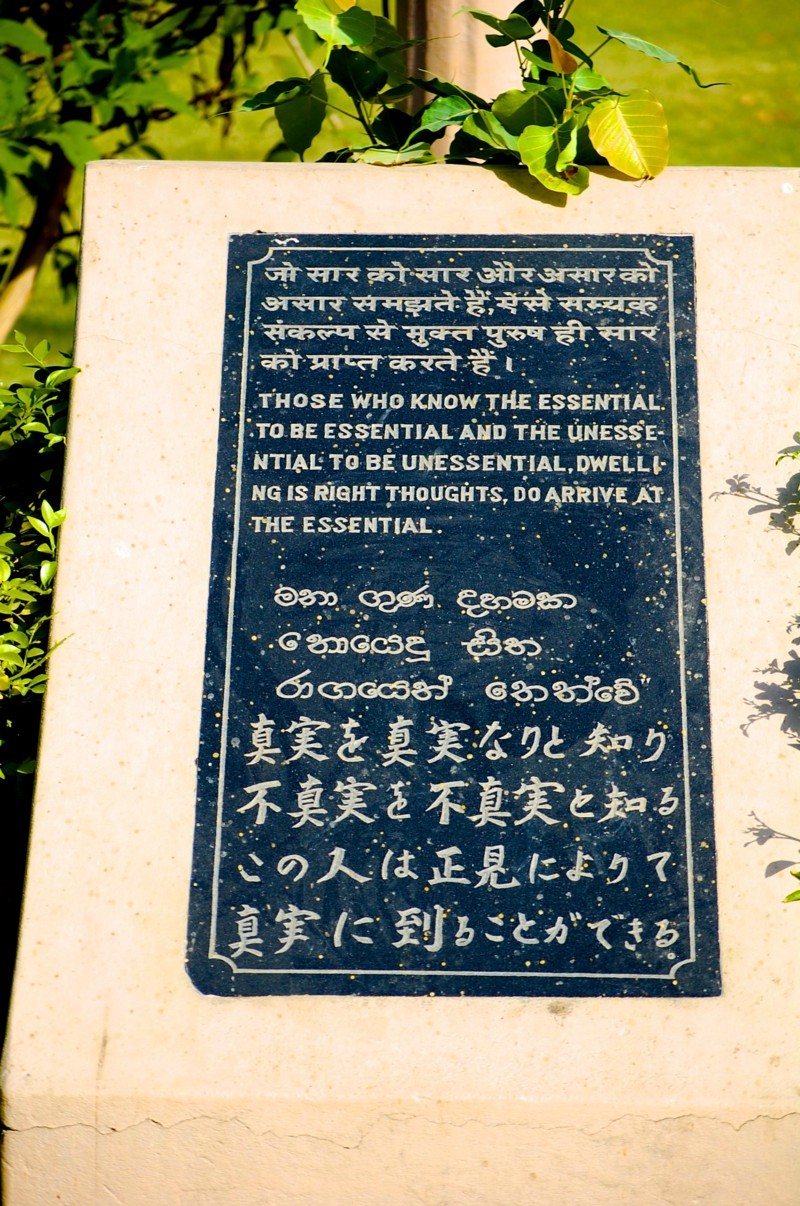 जो सार को सार और असार को
असार समझते हैं, ऐसे सम्यक्
संकल्प से मुक्त पुरुष ही सार
को प्राप्त करते हैं ।
THOSE WHO KNOW THE ESSENTIAL
TO BE ESSENTIAL AND THE UNESSE-
NTIAL TO BE UNESSENTIAL, DWELLI-
NG IS RIGHT THOUGHTS, DO ARRIVE AT
THE ESSENTIAL.
මහා ගුණ දහමක
නොයෙදූ සිත
රාගයෙන් තෙත්වේ"
真実を真実なりと知り
不真実を不真実と知る
この人は正見によりて
真実に到ることができる。